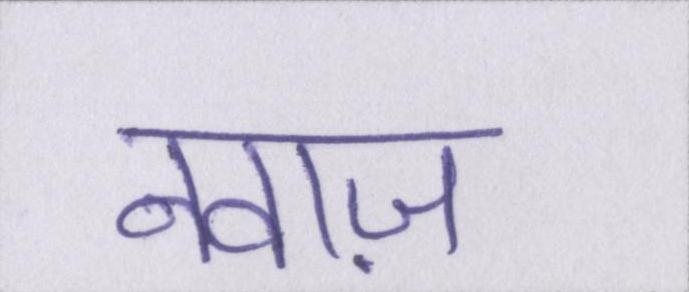 नवाज़